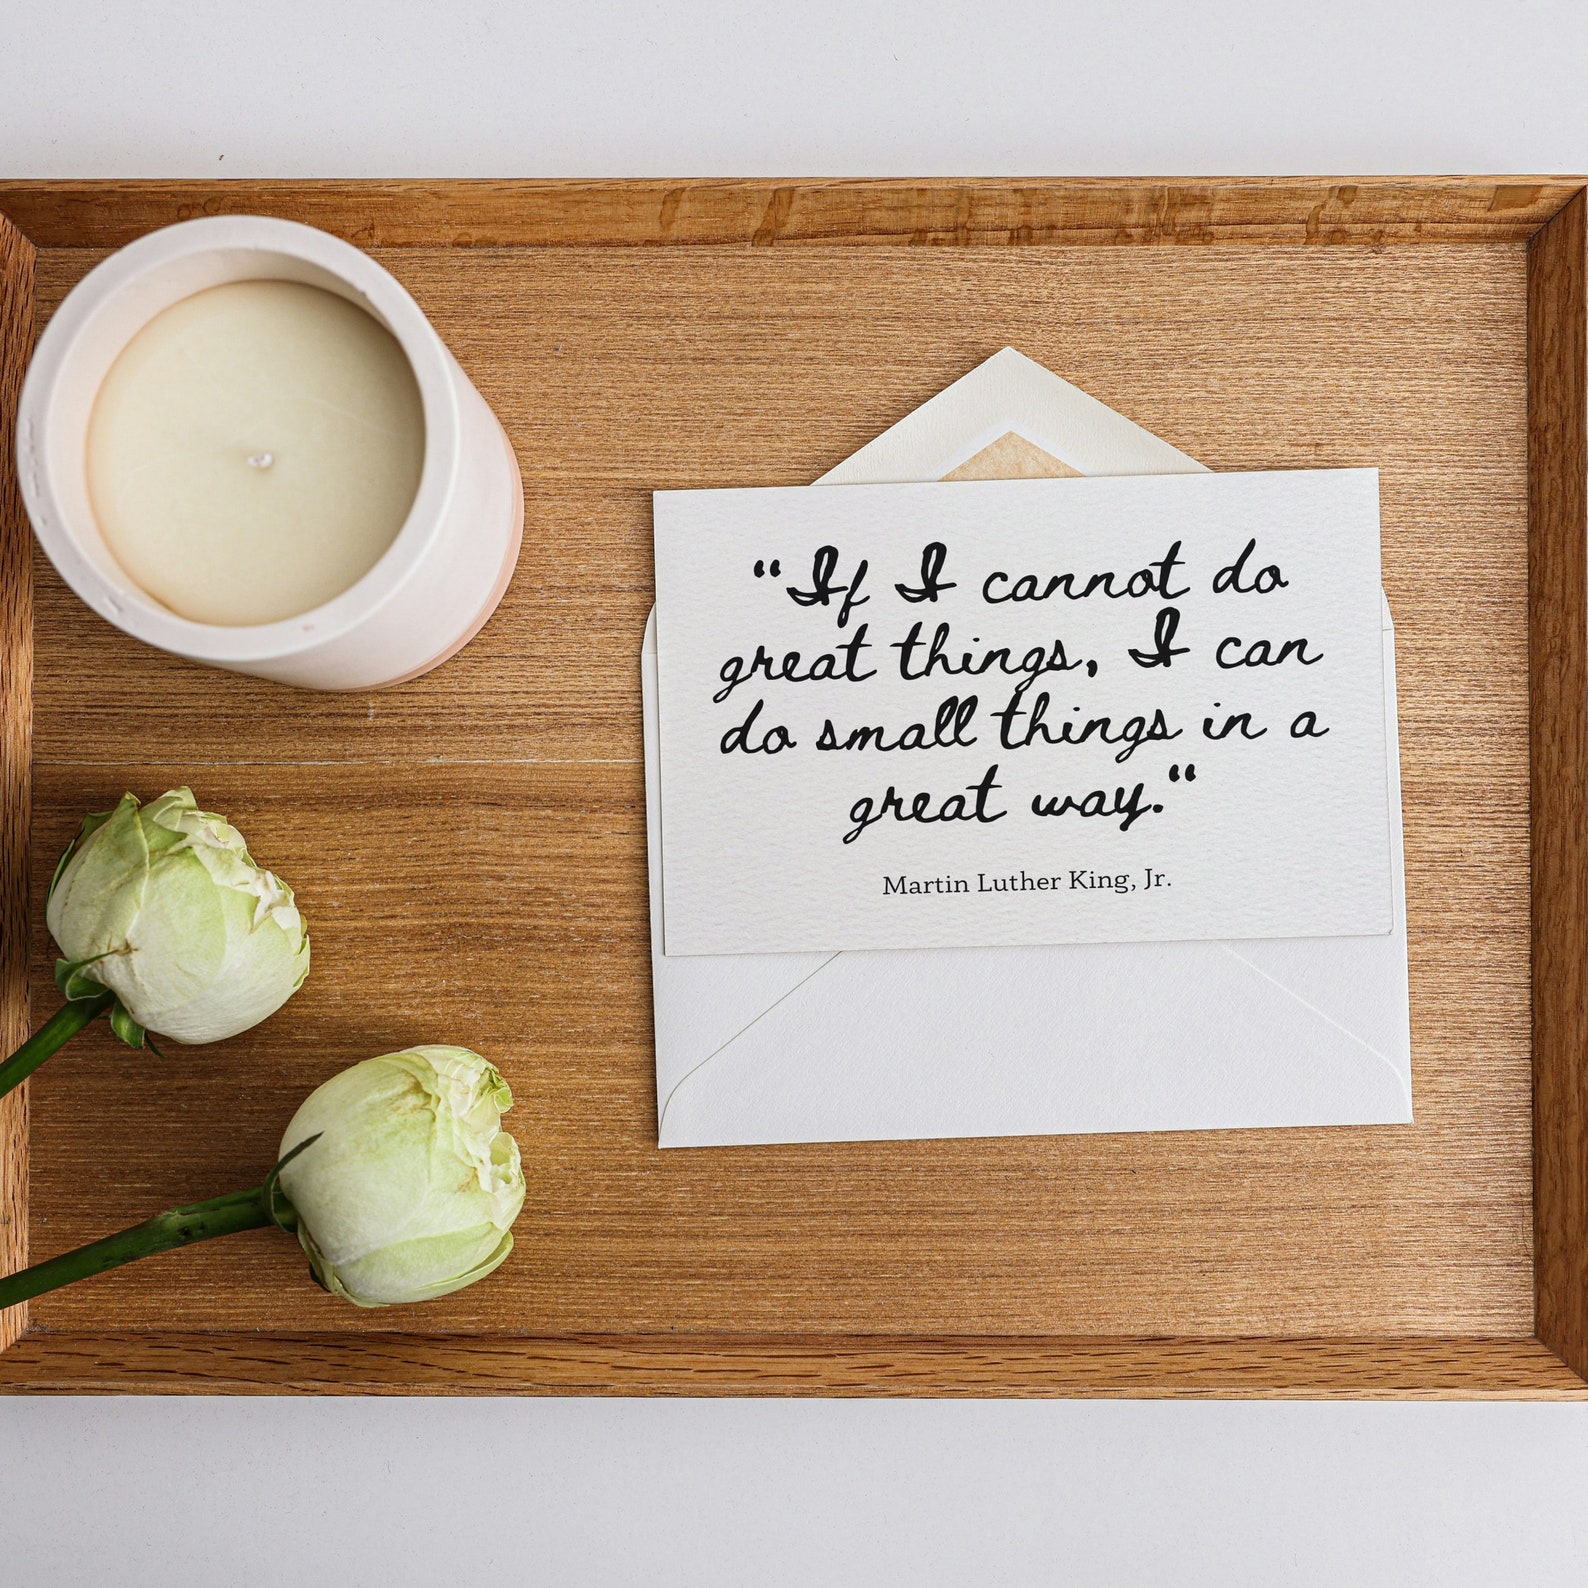 “If I cannot do
great things, I can
do small things in a
great way.“
Martin Luther King, Jr.